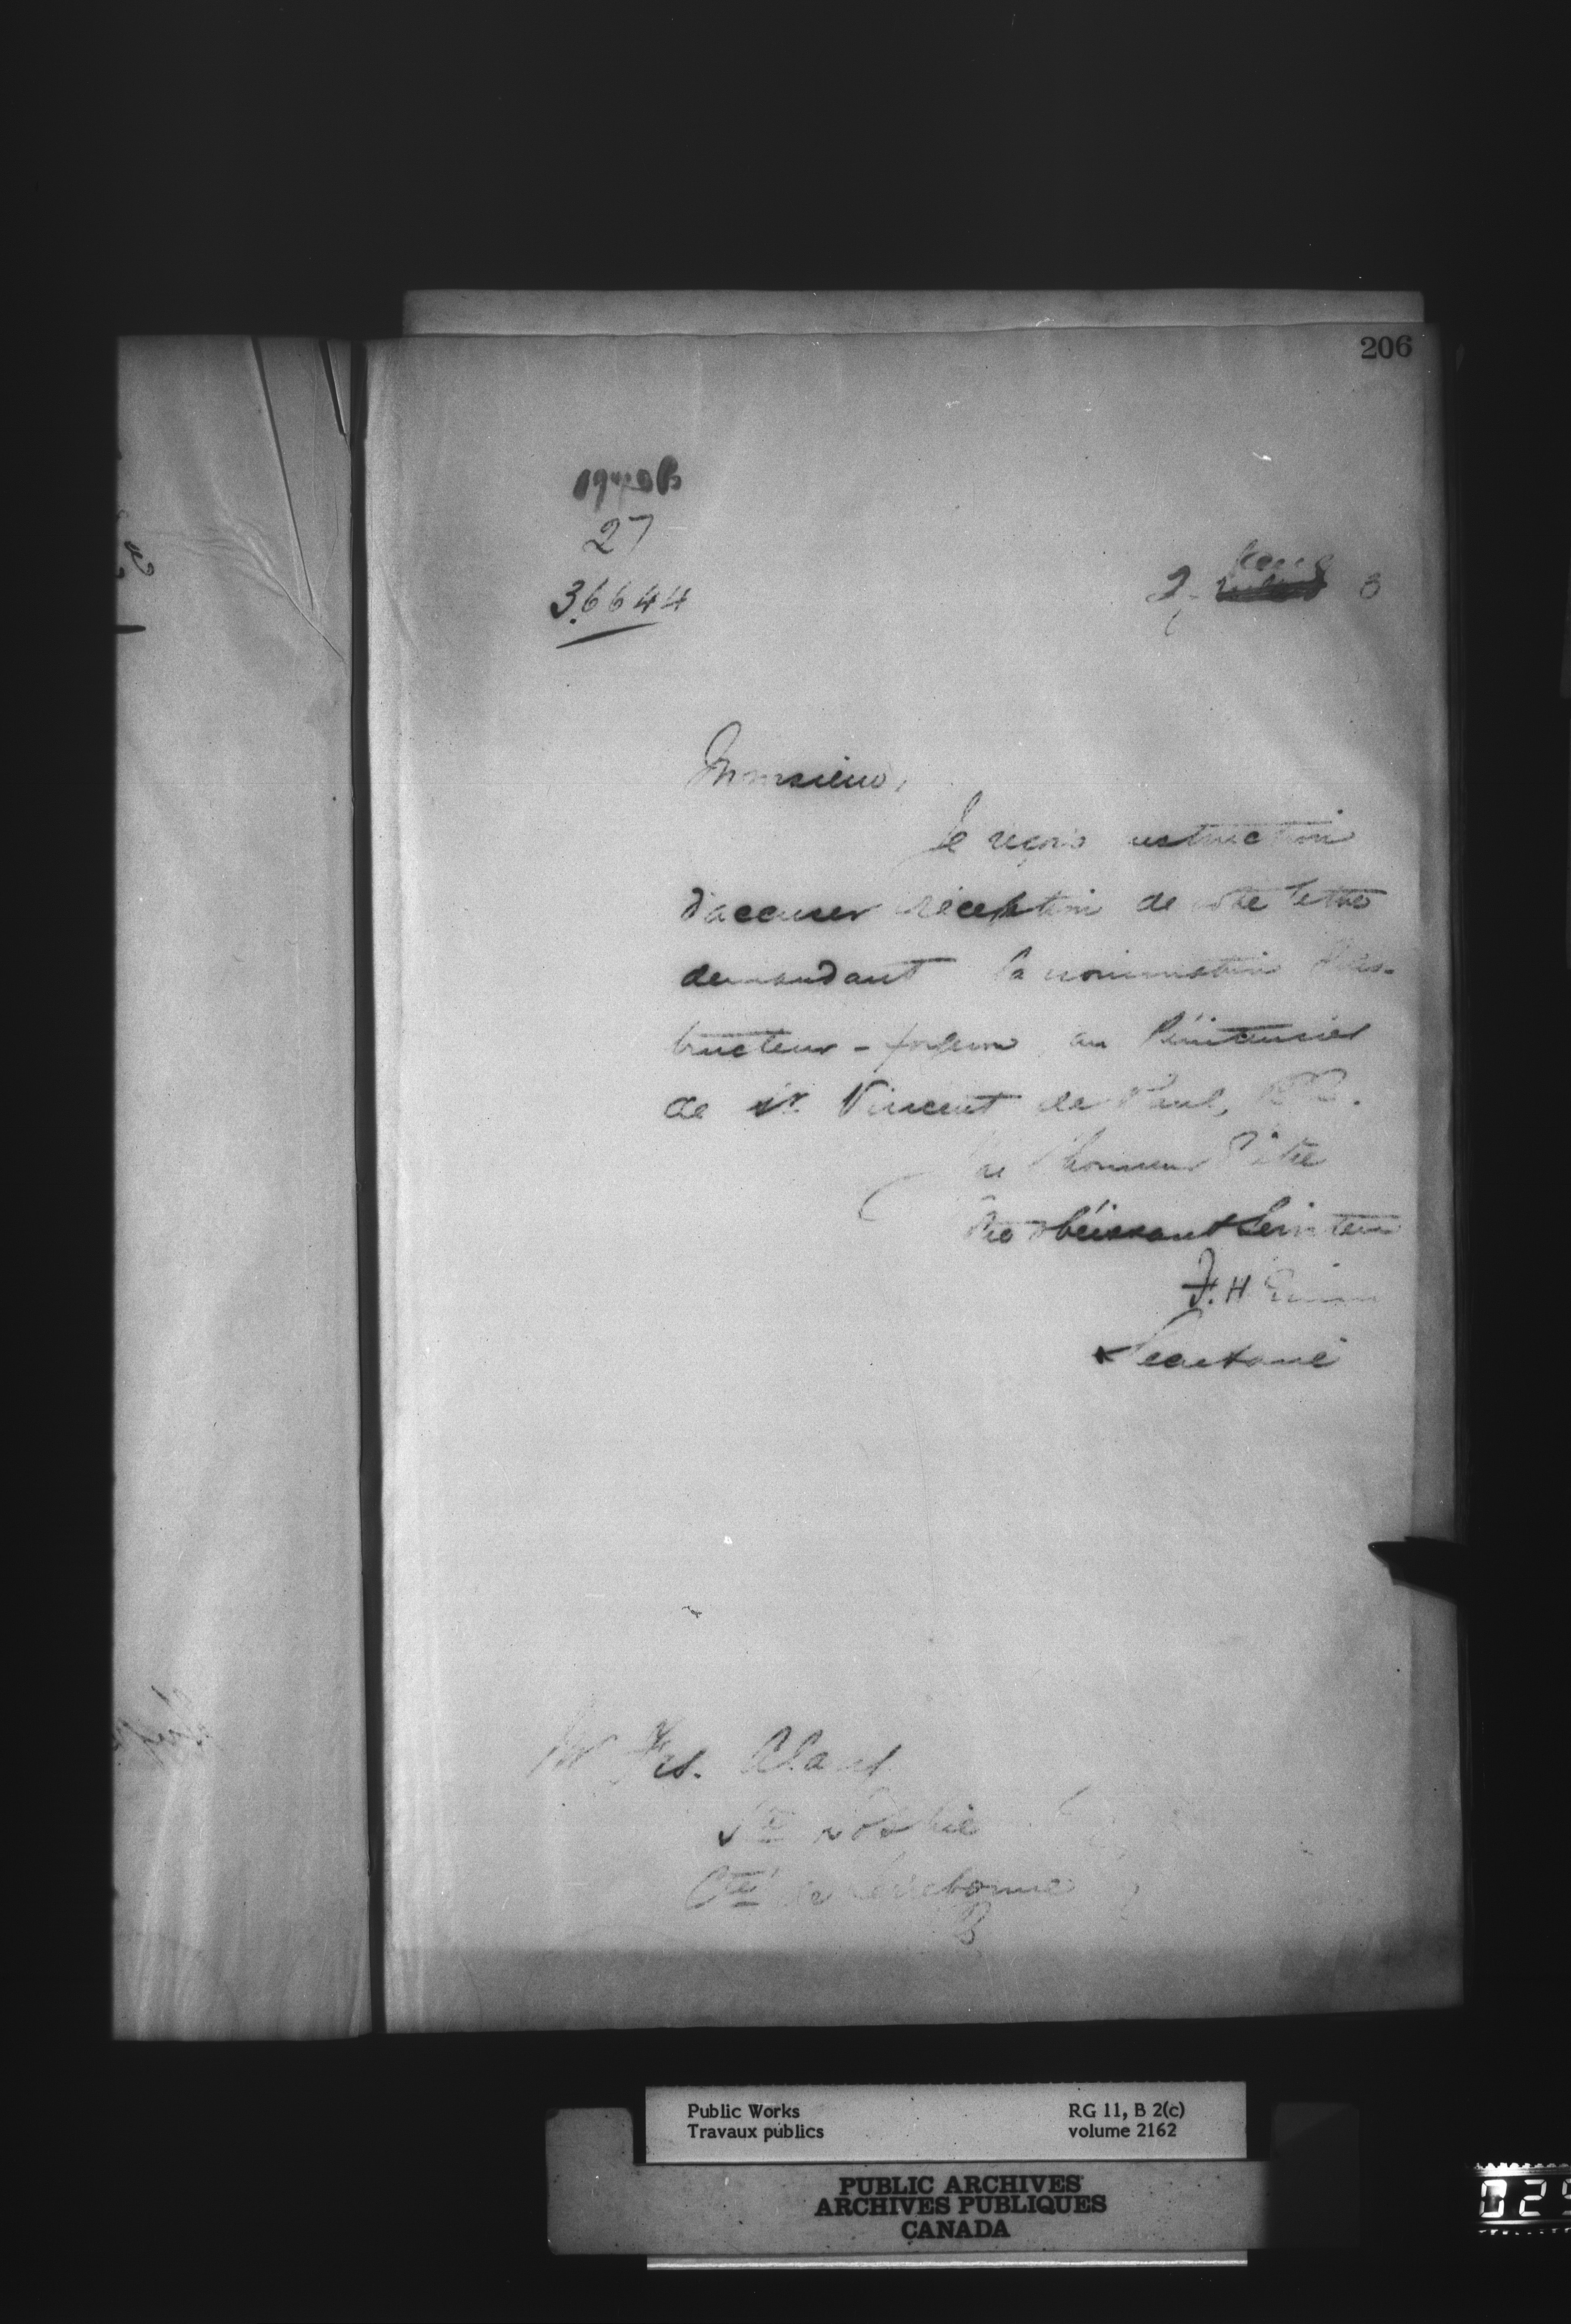 206
27
36644
2
3
Monsieur,
Je reçois instruction
d'accuser réception de votre lettre
demandant la nomination d'ins-
tructeur-forgeron au Pénitencier
de St. Vincent de Paul, P.Q.
J'ai l'honneur d'être
Votre obéissant Serviteur
F. H. Ennis
Secrétaire
Mr Frs.
Ste Sophie
Cté de Terrebonne
Public Works
Travaux publics
RG 11, B 2(c)
volume 2162
PUBLIC ARCHIVES
ARCHIVES PUBLIQUES
CANADA